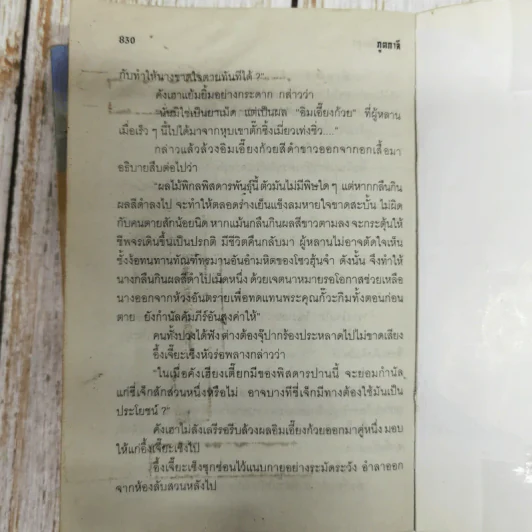 830
ภูตกาลี
กับทำให้นางขาดใจตายทันทีได้ ?"
คังเฮาแย้มยิ้มอย่างกระดาก กล่าวว่า
"นั่นมิใช่เป็นยาเม็ด แต่เป็นผล "อิมเอี๊ยงก้วย" ที่ผู้หลาน
เมื่อเร็ว ๆ นี้ไปได้มาจากหุบเขาตั๊กซิ้งเมี่ยวเท่งซิ่ว...."
กล่าวแล้วล้วงอิมเอี๊ยงก้วยสีดำขาวออกจากอกเสื้อมา
อธิบายสืบต่อไปว่า
"ผลไม้พิกลพิสดารพันธุ์นี้ ตัวมันไม่มีพิษใด ๆ แต่หากกลืนกิน
ผลสีดำลงไป จะทำให้ตลอดร่างเย็นแข็งลมหายใจขาดสะบั้น ไม่ผิด
กับคนตายสักน้อยนิด หากแม้นกลืนกินผลสีขาวตามลง จะกระตุ้นให้
ชีพจรเดินขึ้นเป็นปรกติ มีชีวิตคืนกลับมา ผู้หลานไม่อาจตัดใจเห็น
รั้งร้อทนทานทัณฑ์ทรมานอันอำมหิตของโซวฮุ้นจำ ดังนั้น จึงทำให้
นางกลืนกินผลสีดำไปเม็ดหนึ่ง ด้วยเจตนาหมายรอโอกาสช่วยเหลือ
นางออกจากห้วงอันตรายเพื่อทดแทนพระคุณกั๊วะกิมทั้งตอนก่อน
ตาย ยังกำนัลคัมภีร์อันสูงค่าให้"
คนทั้งปวงได้ฟัง ต่างต้องจุ๊ปากร้องประหลาดไปไม่ขาดเสียง
อึ้งเจี๊ยะเซ็งหัวร่อพลางกล่าวว่า
"ในเมื่อคังเฮียงเตี๋ยกมีของพิสดารปานนี้ จะยอมกำนัล
แก่ซี่เจ็กสักส่วนหนึ่งหรือไม่ อาจบางทีซี่เจ็กมีทางต้องใช้มันเป็น
ประโยชน์ ?"
คังเฮาไม่ลังเลรีรอรีบล้วงผลอิมเอี๊ยงก้วยออกมาคู่หนึ่ง มอบ
ให้แก่อึ้งเจี๊ยะเซ็งไป
อึ้งเจี๊ยะเซ็งซุกซ่อนไว้แนบกายอย่างระมัดระวัง อำลาออก
จากห้องลับสวนหลังไป